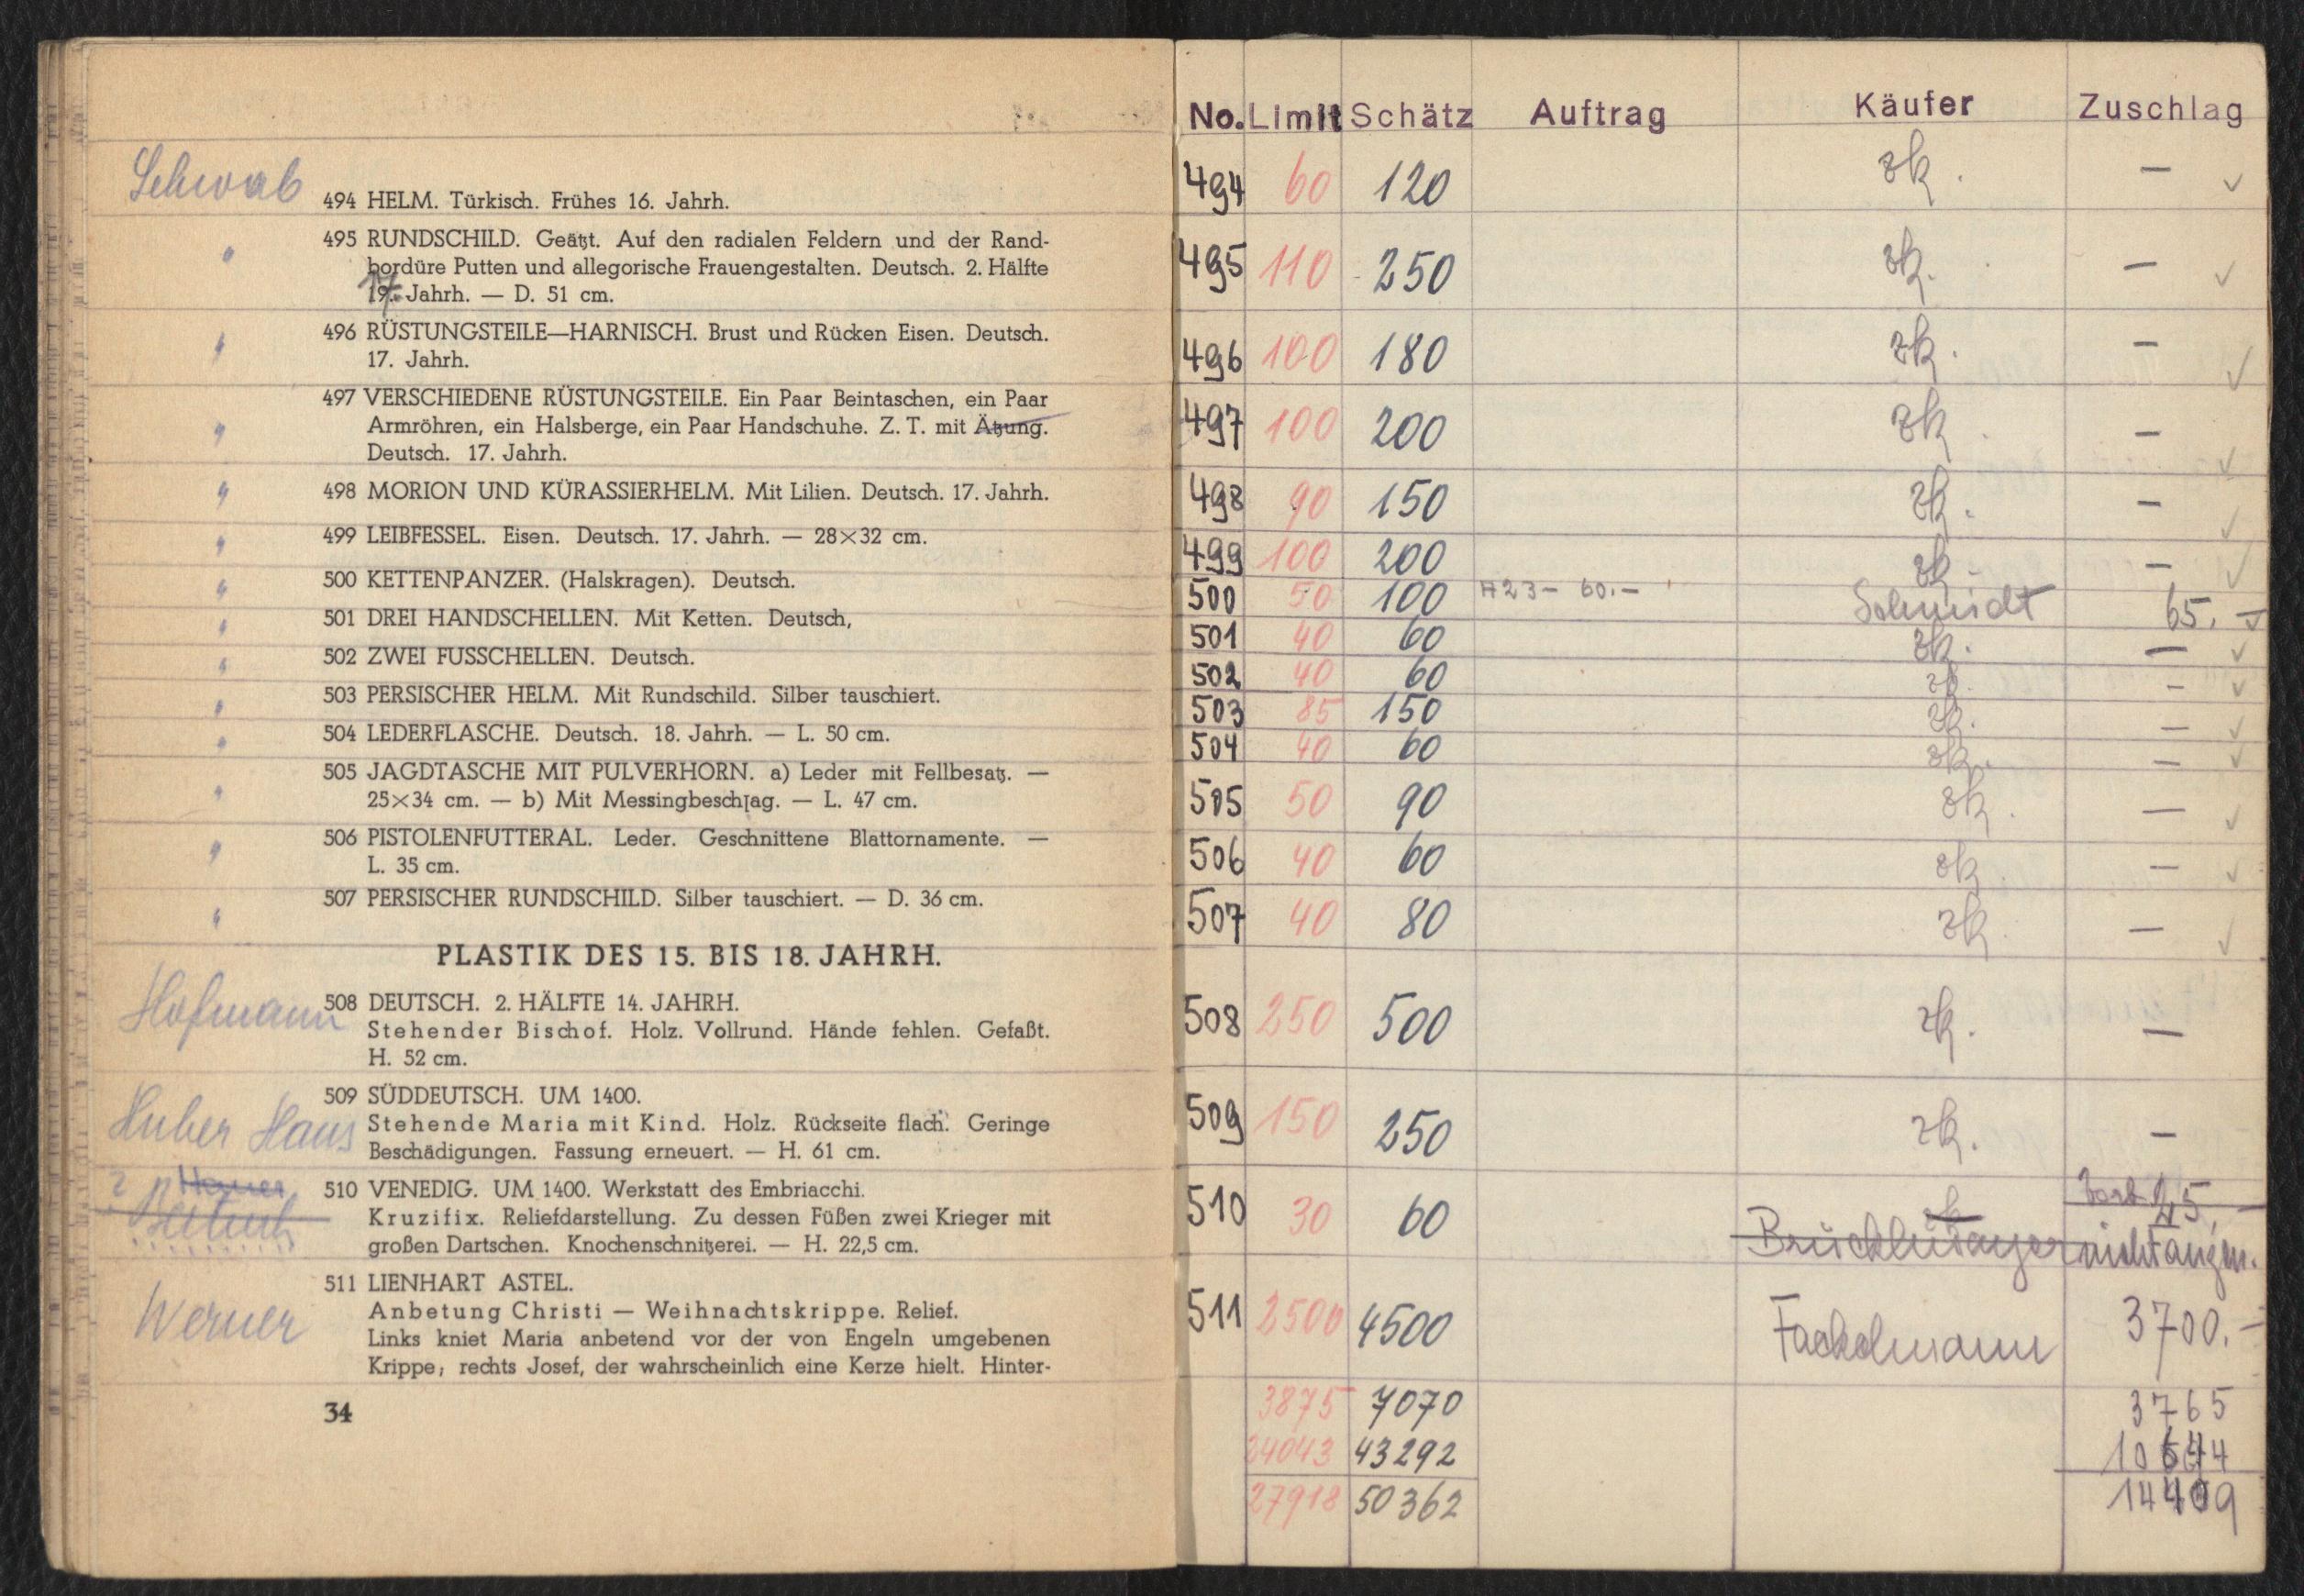 Schwab
494 HELM. Türkisch. Frühes 16. Jahrh.
" 495 RUNDSCHILD. Geätzt. Auf den radialen Feldern und der Rand-
bordüre Putten und allegorische Frauengestalten. Deutsch. 2. Hälfte
17.
19. Jahrh. — D. 51 cm.
" 496 RÜSTUNGSTEILE—HARNISCH. Brust und Rücken Eisen. Deutsch.
17. Jahrh.
" 497 VERSCHIEDENE RÜSTUNGSTEILE. Ein Paar Beintaschen, ein Paar
Armröhren, ein Halsberge, ein Paar Handschuhe. Z. T. mit Ätzung.
Deutsch. 17. Jahrh.
" 498 MORION UND KÜRASSIERHELM. Mit Lilien. Deutsch. 17. Jahrh.
" 499 LEIBFESSEL. Eisen. Deutsch. 17. Jahrh. — 28×32 cm.
" 500 KETTENPANZER. (Halskragen). Deutsch.
" 501 DREI HANDSCHELLEN. Mit Ketten. Deutsch,
" 502 ZWEI FUSSCHELLEN. Deutsch.
" 503 PERSISCHER HELM. Mit Rundschild. Silber tauschiert.
" 504 LEDERFLASCHE. Deutsch. 18. Jahrh. — L. 50 cm.
" 505 JAGDTASCHE MIT PULVERHORN. a) Leder mit Fellbesatz. —
25×34 cm. — b) Mit Messingbeschlag. — L. 47 cm.
" 506 PISTOLENFUTTERAL. Leder. Geschnittene Blattornamente. —
L. 35 cm.
" 507 PERSISCHER RUNDSCHILD. Silber tauschiert. — D. 36 cm.
PLASTIK DES 15. BIS 18. JAHRH.
Hofmann
508 DEUTSCH. 2. HÄLFTE 14. JAHRH.
Stehender Bischof. Holz. Vollrund. Hände fehlen. Gefaßt.
H. 52 cm.
Huber Hans
509 SÜDDEUTSCH. UM 1400.
Stehende Maria mit Kind. Holz. Rückseite flach. Geringe
Beschädigungen. Fassung erneuert. — H. 61 cm.
?
510 VENEDIG. UM 1400. Werkstatt des Embriacchi.
Kruzifix. Reliefdarstellung. Zu dessen Füßen zwei Krieger mit
großen Dartschen. Knochenschnitzerei. — H. 22,5 cm.
Werner
511 LIENHART ASTEL.
Anbetung Christi — Weihnachtskrippe. Relief.
Links kniet Maria anbetend vor der von Engeln umgebenen
Krippe; rechts Josef, der wahrscheinlich eine Kerze hielt. Hinter-
34
No. Limit Schätz Auftrag Käufer Zuschlag
494 60 120 zk. — ✓
495 110 250 zk. — ✓
496 100 180 zk. — ✓
497 100 200 zk — ✓
498 90 150 zk. — ✓
499 100 200 zk — ✓
500 50 100 A23 - 60.- Schmidt 65. — ✓
501 40 60 zk. — ✓
502 40 60 zk. — ✓
503 85 150 zk. — ✓
504 40 60 zk. — ✓
505 50 90 zk. — ✓
506 40 60 zk — ✓
507 40 80 zk. — ✓
508 250 500 zk. —
509 150 250 zk. —
510 30 60 zk 45,—
Brücklmayer nicht angen.
511 2500 4500 Fackelmann 3700.—
3875 7070 3765
24043 43292 10644
27918 50362 14409